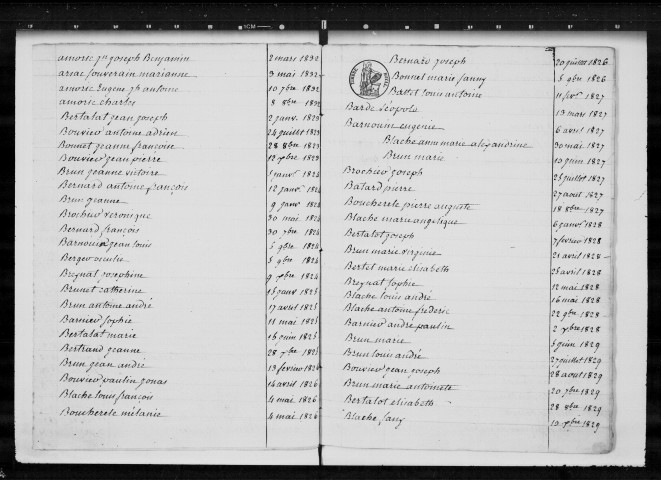 amoric jn joseph Benjamin 2 mars 1832
ariac souverain marianne 3 mai 1832
amoric Eugene jh antoine 10 7bre 1832
amoric charles 8 8bre 1832
Bertalat jean joseph 2 janvr 1823
Bouvier antoine adrien 24 juillet 1823
Bonnet jeanne francoise 28 8bre 1823
Bouvier jean pierre 12 xbre 1823
Brun jeanne victoire 1 janvr 1824
Bernard antoine françois 12 janvr 1824
Brun jeanne 9 janvr 1824
Brochier veronique 30 mai 1824
Bernard françois 30 7bre 1824
Barnouin jean louis 5 9bre 1824
Berger 5 9bre 1824
Breynat josephine 9 xbre 1824
Brunet catherine 15 janvr 1825
Brun antoine andré 17 avril 1825
Barnier sophie 11 mai 1825
Bertalat marie 16 juin 1825
Bertrand jeanne 28 7bre 1825
Brun jean andré 13 fevrier 1826
Bouvier paulin jonas 14 avril 1826
Blache louis françois 4 mai 1826
Boucherele mélanie 4 mai 1826
Bernard joseph 20 juillet 1826
Bonnet marie fanny 5 9bre 1826
Battet louis antoine 11 fevr 1827
Barde Léopold 13 mars 1827
Barnouin eugenie 6 avril 1827
Blache anne marie alexandrine 30 mai 1827
Brun marie 10 juin 1827
Brochier joseph 25 juillet 1827
Batard pierre 27 aout 1827
Boucherele pierre auguste 18 8bre 1827
Blache marie angelique 6 janvr 1828
Bertalot joseph 7 fevrier 1828
Brun marie virginie 21 avril 1828
Bertel marie elisabeth 25 avril 1828
Breynat sophie 12 mai 1828
Blache louis andré 16 mai 1828
Blache antoine frederic 22 9bre 1828
Barnier andré paulin 2 xbre 1828
Brun marie 5 juin 1829
Brun louis andré 27 juillet 1829
Bouvier jean joseph 28 aout 1829
Brun marie antoinete 20 7bre 1829
Bertalot elisabeth 28 8bre 1829
Blache fany 10 xbre 1829